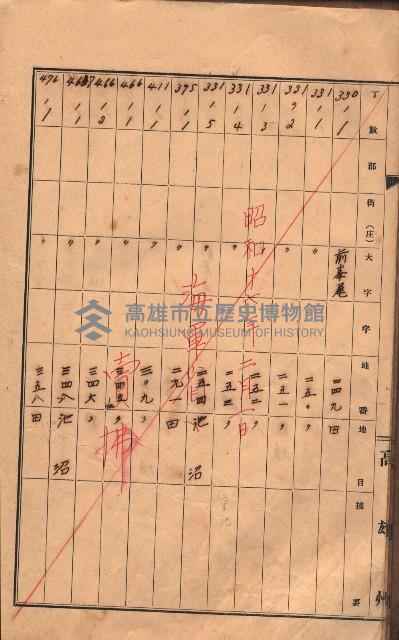 丁數 郡 街(庄) 大字 字 地番 地目 摘要
330 1 1 前峯尾 二四九 田
331 1 1 〃 二五〇 〃
331 9 2 〃 二五一 〃
331 1 3 〃 二五二 〃
331 1 4
331 1 5 〃 二五四 池沼
395 1 1 〃 二九一 田
411 1 1 〃 三〇九 〃
466 1 1 〃
466 1 2 〃 三四六 〃
467 1 1 〃 三四八 池沼
476 1 1 〃 三五八 田
昭和十六年
海軍省
賣拂
高雄州
高雄市立歷史博物館
KAOHSIUNG MUSEUM OF HISTORY